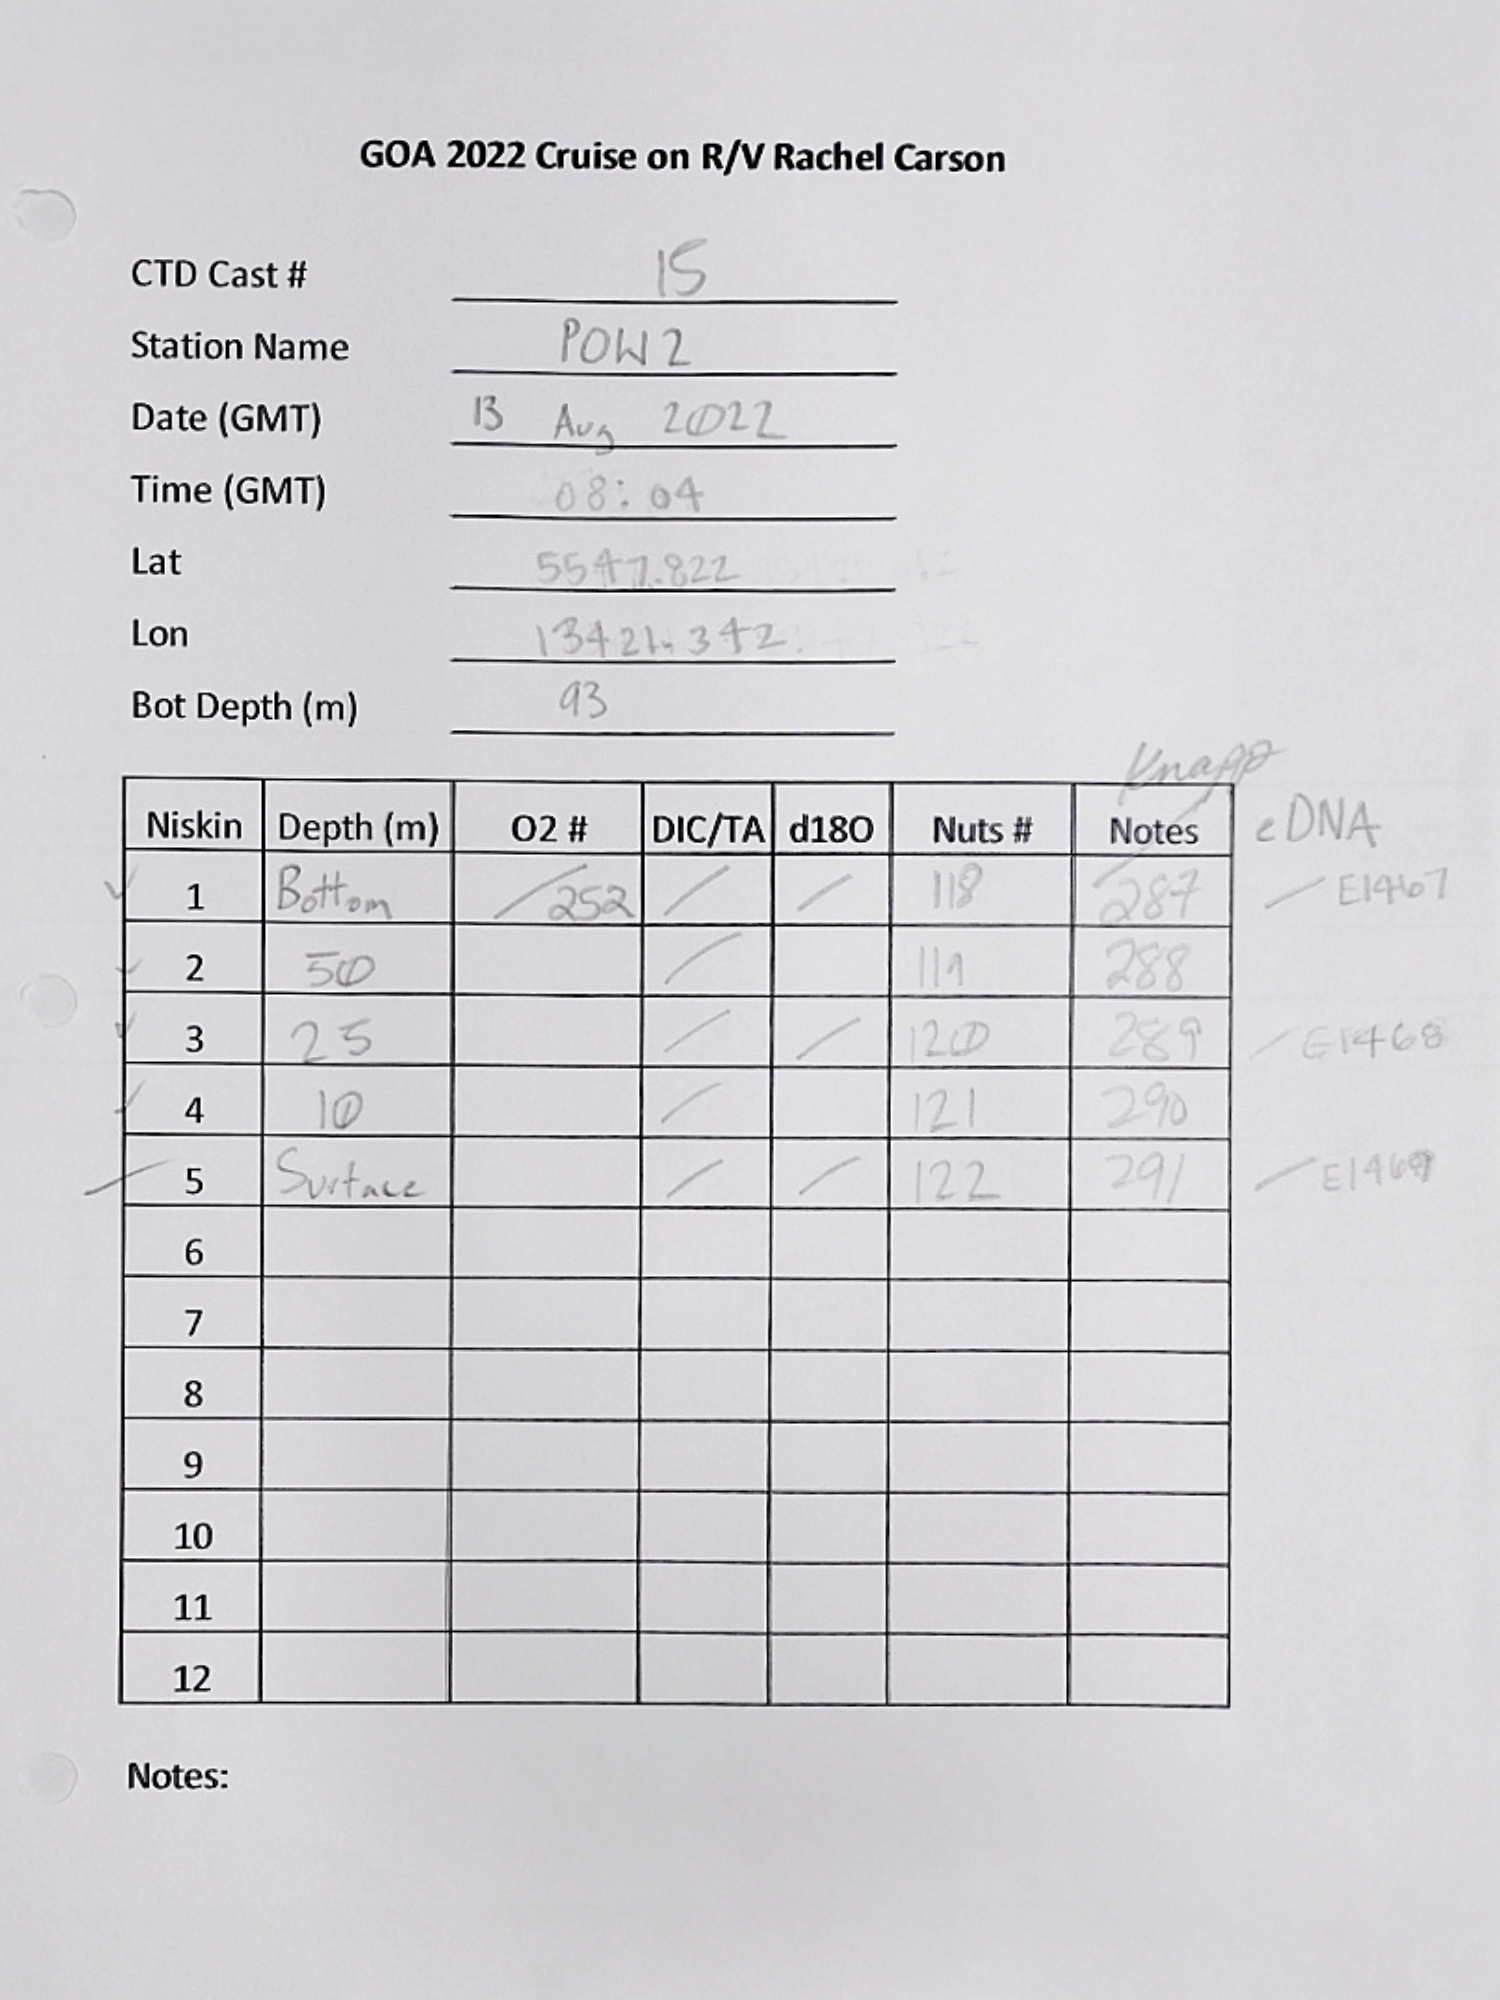 GOA 2022 Cruise on R/V Rachel Carson
CTD Cast # 15
Station Name POW2
Date (GMT) 13 Aug 2022
Time (GMT) 08:04
Lat 5547.822
Lon 13421.342
Bot Depth (m) 93
Knapp
Niskin Depth (m) O2 # DIC/TA d18O Nuts # Notes eDNA
✓ 1 Bottom / 252 / / 118 287 / E1467
✓ 2 50 / 119 288
✓ 3 25 / / 120 289 / E1468
✓ 4 10 / 121 290
/ 5 Surface / / 122 291 / E1469
6
7
8
9
10
11
12
Notes: